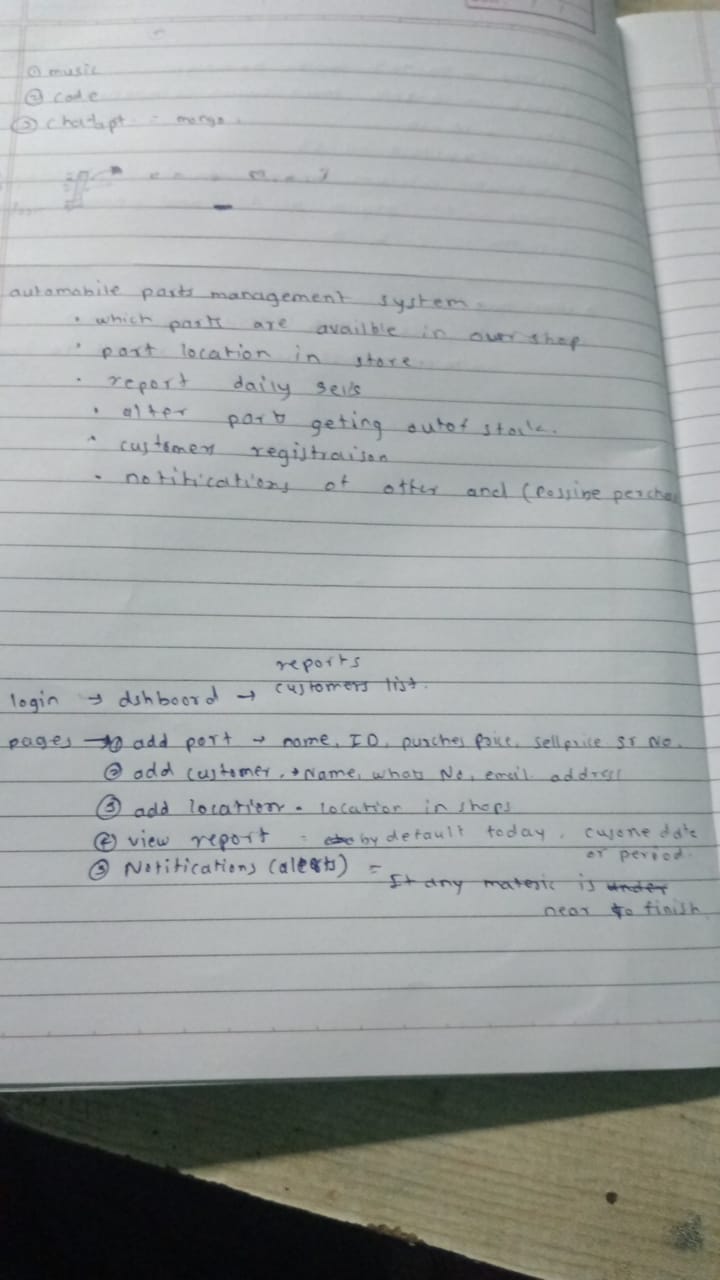 ① music
② code
③ chatgpt = mongo.
automobile parts management system.
• which parts are availble in our shop
• part location in store
• report daily sells
• alter parts geting out of stock.
• customer registraison
• notifications of offer and (
reports
login → dshboord → customers list.
pages → ① add part → name, ID, purches price, sellprice sr No.
② add customer, → Name, whats No, email address
③ add location = location in shops
④ view report = by default today, cusone date
or period.
⑤ Notifications (alerts) = If any materic is under
near to finish